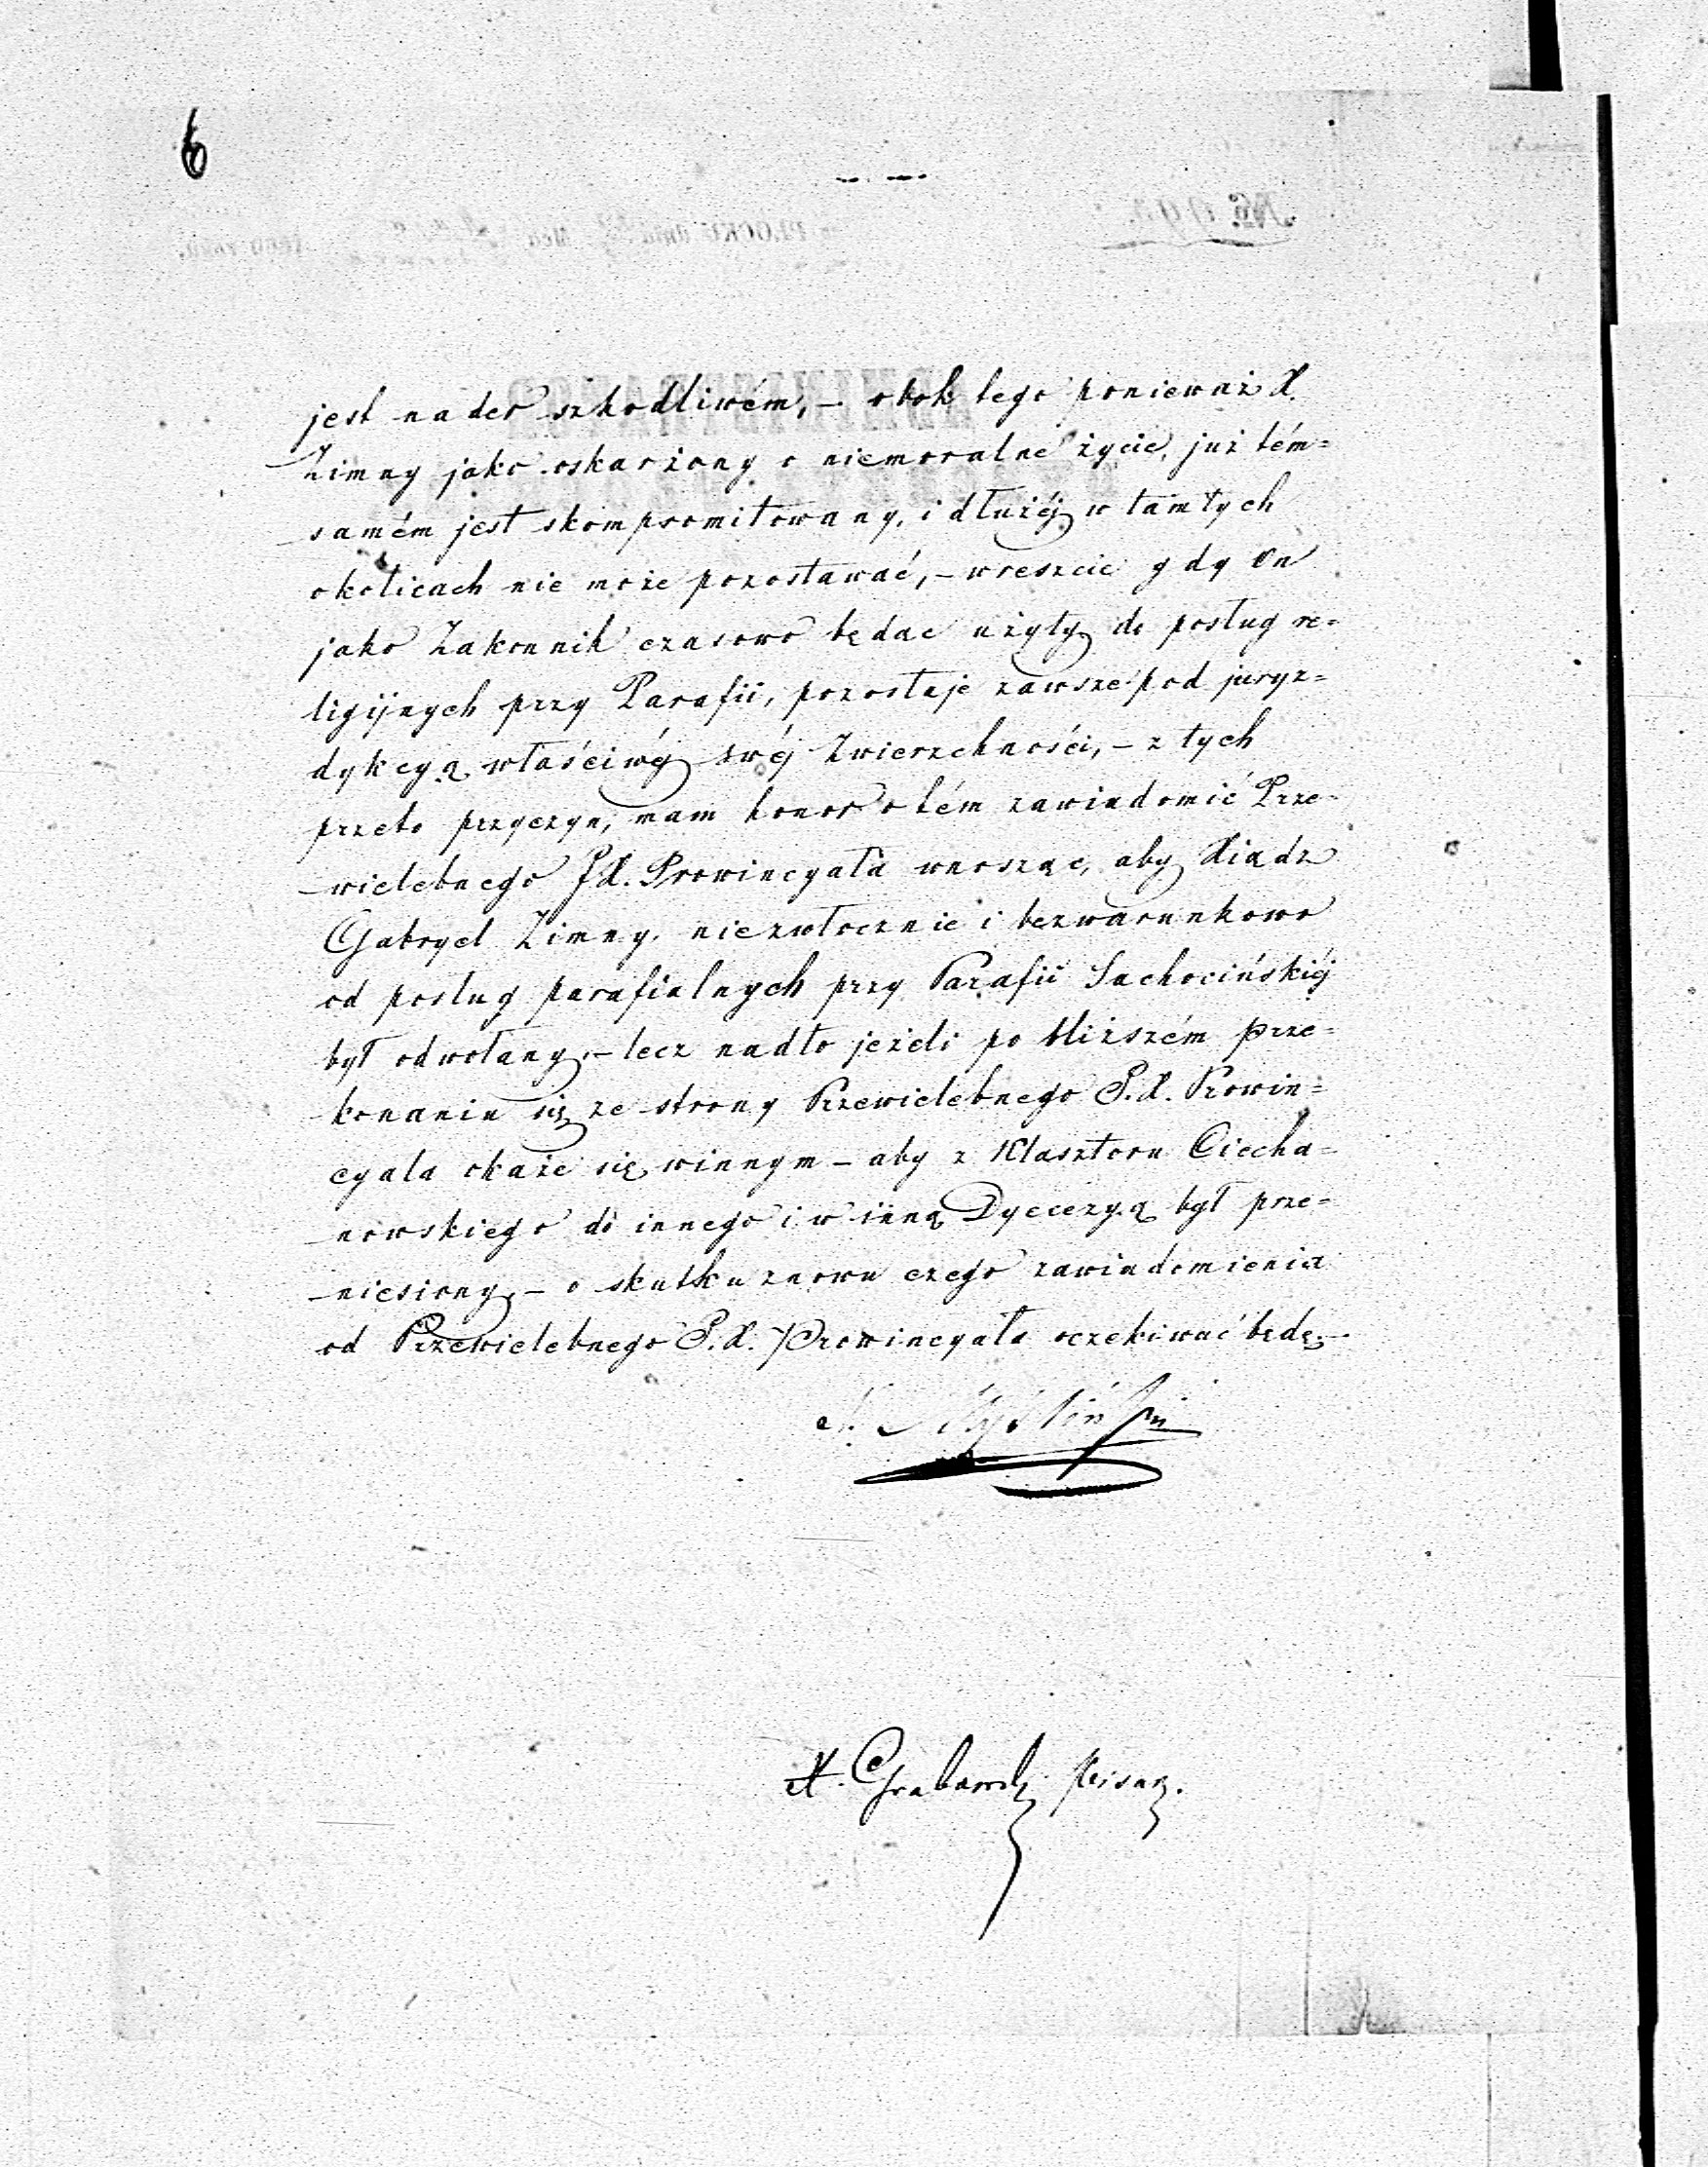 6
jest nader szkodliwém, – obok tego ponieważ X.
Zimny jako oskarżony o niemoralne życie, już tém=
samém jest skompromitowany, i dłużéj w tamtych
okolicach nie może pozostawać, – wreszcie gdy on
jako Zakonnik czasowo będac użyty do posług re=
ligijnych przy Parafii, pozostaje zawsze pod juryz=
dykcyą właściwéj swéj Zwierzchności, – z tych
przeto przyczyn, mam honor o tém zawiadomić Prze=
wielebnego JX. Prowincyała wnosząc, aby Xiądz
Gabryel Zimny, niezwłocznie i bezwarunkowo
od posług parafialnych przy Parafii Sachocińskiéj
był odwołany, – lecz nadto jeżeli po bliższém prze=
konaniu się ze strony Przewielebnego J.X. Prowin=
cyała okaże się winnym – aby z Klasztoru Ciecha=
nowskiego do innego i w inną Dyecezyą był prze=
niesiony, – o skutku znowu czego zawiadomienia
od Przewielebnego J.X. Prowincyała oczekiwać będę. –
X. Myśliński
Pisarz.